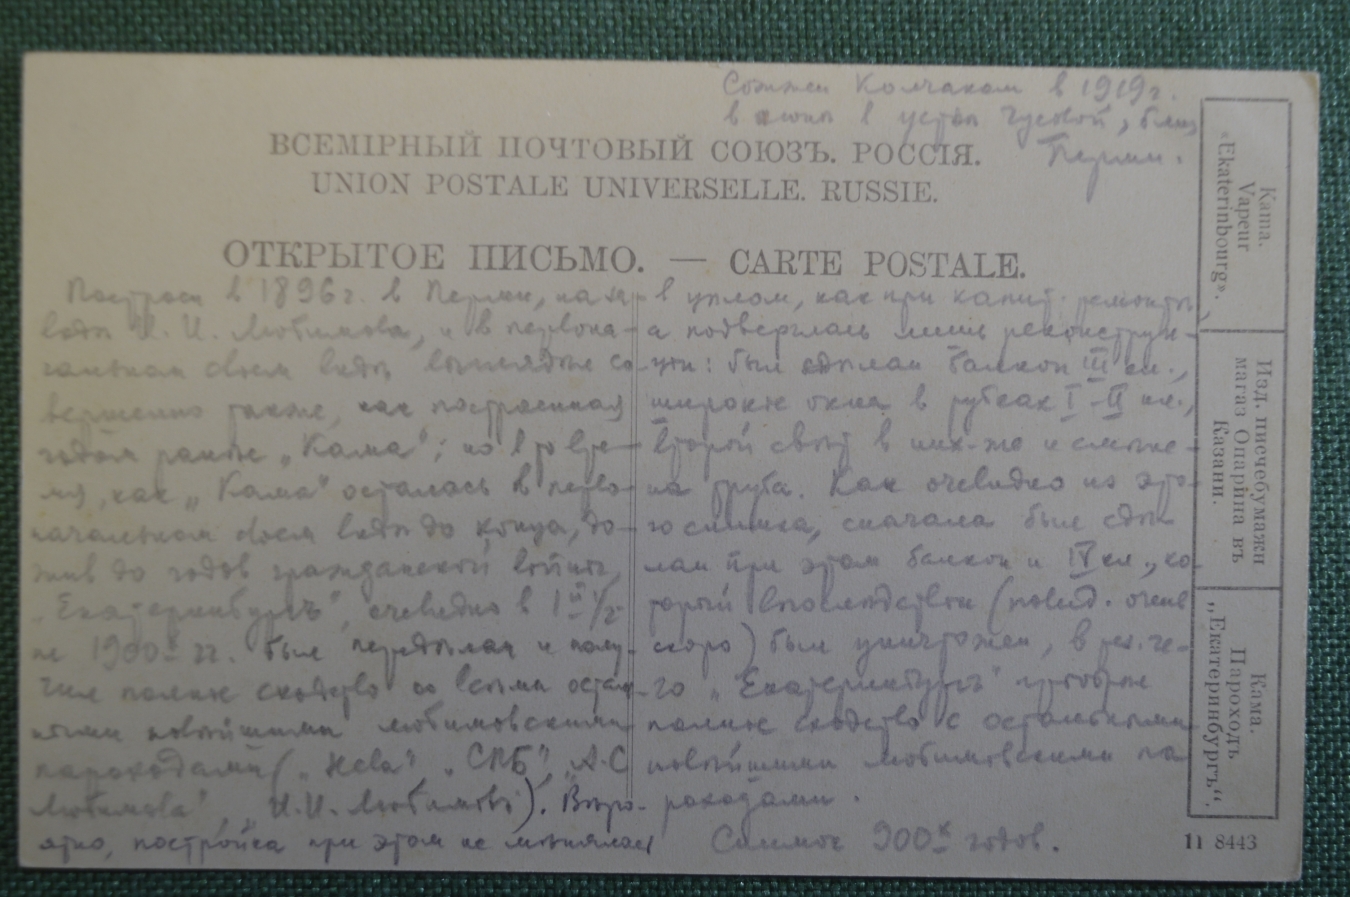 Сожжен Колчаком в 1919 г.
в июне в устьи Чусовой, близ
Перми.
ВСЕМІРНЫЙ ПОЧТОВЫЙ СОЮЗЪ. РОССІЯ.
UNION POSTALE UNIVERSELLE. RUSSIE.
ОТКРЫТОЕ ПИСЬМО. — CARTE POSTALE.
Построен в 1896 г. в Перми, на за-
воды И. И. Любимова, и в первона-
чальном своем виды выглядыл со-
вершенно также, как построенная
годом раньше „Кама"; но в то вре-
мя, как „Кама" осталась в перво-
начальном своем виды до конца, до-
жив до годов гражданской войны,
„Екатеринбургъ", очевидно в 1й 1/2-
не 1900х гг. был передылан и полу-
чил полное сходство со всеми осталь-
ными новыйшими любимовскими
пароходами („Нева", „СПБ", „А. С.
Любимова", „И. И. Любимовъ"). Выро-
ятно, постройка при этом не мынялась
в цылом, как при капит. ремонты,
а подверглась лишь реконструк-
ции: был сдылан балкон III кл.,
широкие окна в рубках I-II кл.,
второй свыт в них-же и смыне-
на труба. Как очевидно из это-
го снимка, сначала был сды-
лан при этом балкон и IV кл., ко-
торый впослыдствии (повид. очень
скоро) был уничтожен, в рез. че-
го „Екатеринбургъ" приобрыл
полное сходство с остальными
новыйшими любимовскими па-
роходами.
Снимок 900х годов.
Кама.
Vapeur
«Ekaterinbourg».
Изд. писчебумажн
магаз Опарина въ
Казани.
Кама.
Пароходъ
„Екатеринбургъ".
11 8443